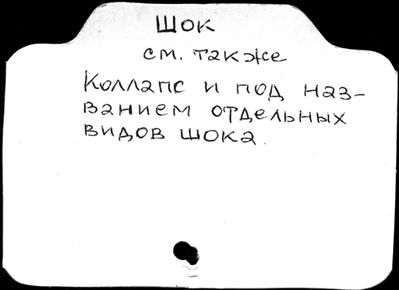 Шок
см. также
Коллапс и под наз-
ванием отдельных
видов шока.